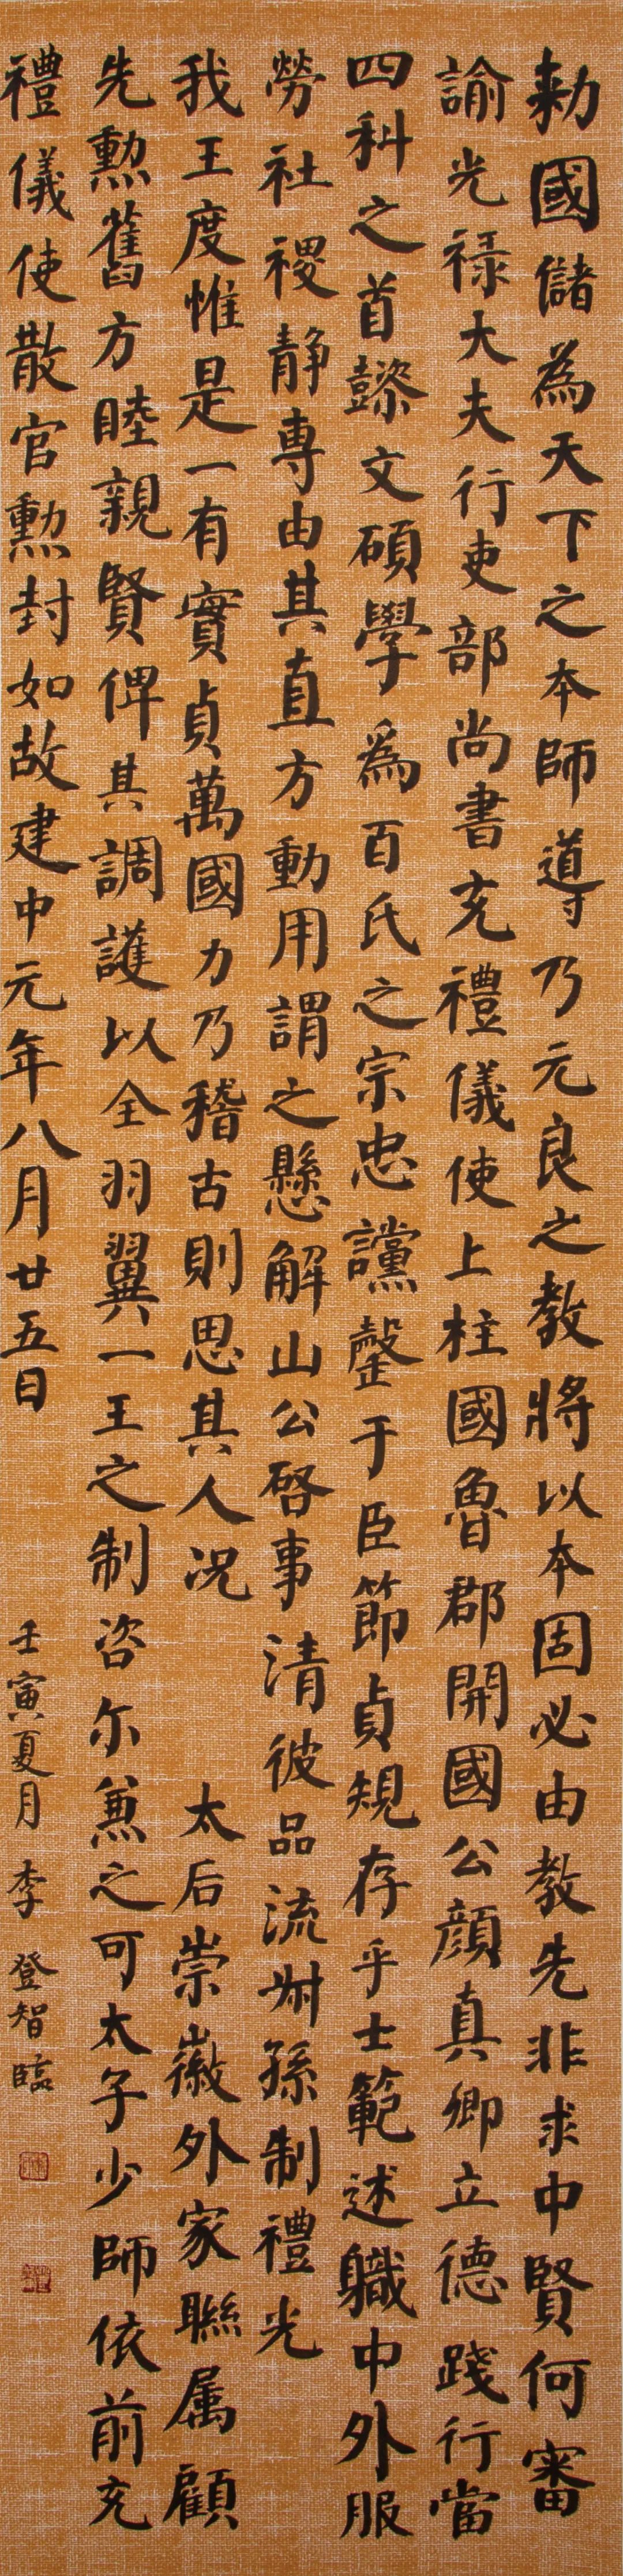 勑國儲為天下之本師導乃元良之教將以本固必由教先非求中賢何審
諭光禄大夫行吏部尚書充禮儀使上柱國魯郡開國公顔真卿立德踐行當
四科之首懿文碩學為百氏之宗忠讜罄于臣節貞規存乎士範述職中外服
勞社稷静專由其直方動用謂之懸解山公啓事清彼品流叔孫制禮光
我王度惟是一有實貞萬國力乃稽古則思其人况 太后崇徽外家聯属顧
先勲舊方睦親賢俾其調護以全羽翼一王之制咨尔兼之可太子少師依前充
禮儀使散官勲封如故建中元年八月廿五日 壬寅夏月 李登智臨